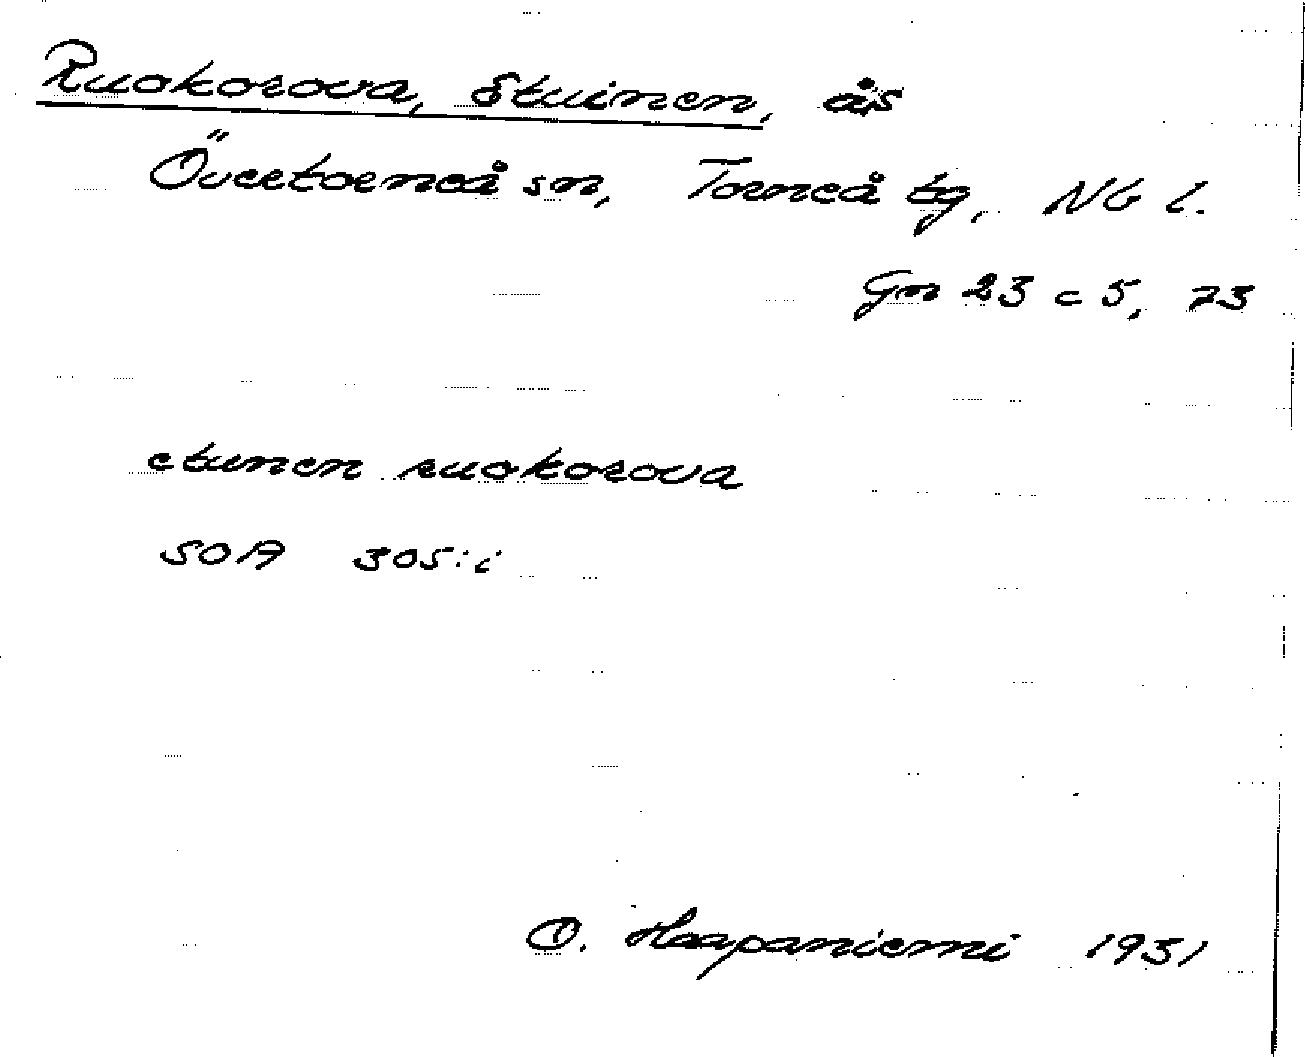 Ruokorova, Etuinen, ås
Övertorneå sn, Torneå tg, Nb l.
Gn 23 c 5, 73
etunen ruokorova
SOA 305:i
O. Haapaniemi 1931